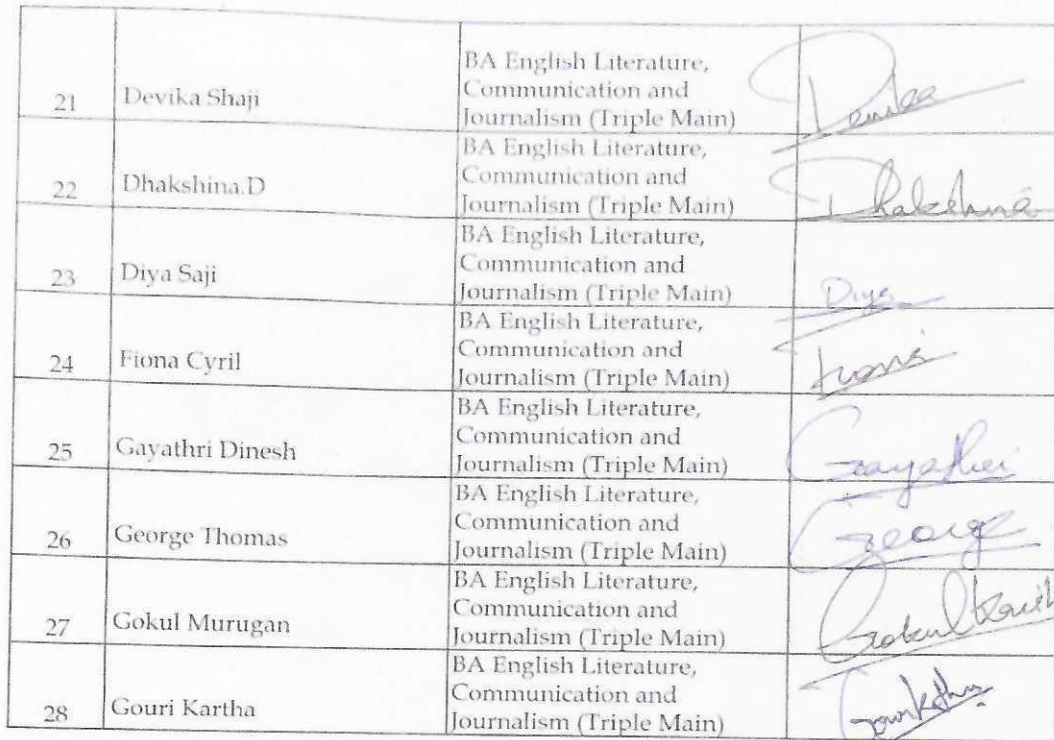 21 Devika Shaji
BA English Literature,
Communication and
Journalism (Triple Main)
Devika
22 Dhakshina.D
BA English Literature,
Communication and
Journalism (Triple Main)
Dhakshina
23 Diya Saji
BA English Literature,
Communication and
Journalism (Triple Main)
Diya
24 Fiona Cyril
BA English Literature,
Communication and
Journalism (Triple Main)
Fiona
25 Gayathri Dinesh
BA English Literature,
Communication and
Journalism (Triple Main)
Gayathri
26 George Thomas
BA English Literature,
Communication and
Journalism (Triple Main)
George
27 Gokul Murugan
BA English Literature,
Communication and
Journalism (Triple Main)
Gokul
28 Gouri Kartha
BA English Literature,
Communication and
Journalism (Triple Main)